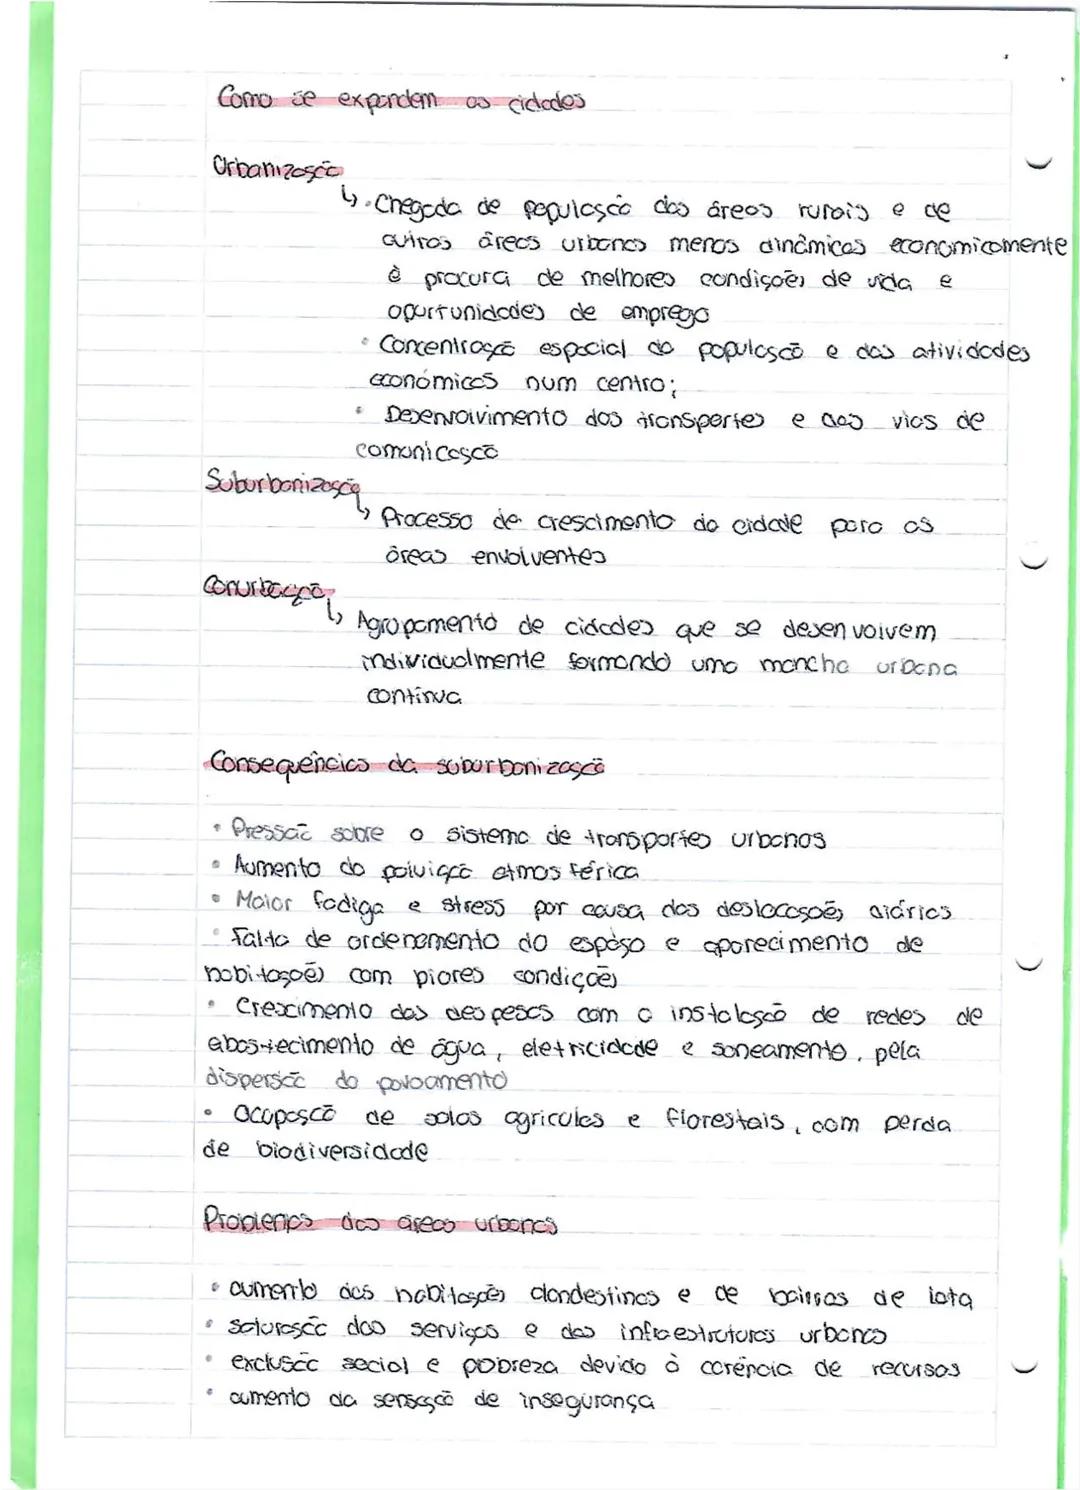 Como se expandem as cidades
Urbanização
↳ • Chegada de população das áreas rurais e de
outras áreas urbanas menos dinâmicas economicamente
à procura de melhores condições de vida e
oportunidades de emprego
• Concentração espacial da população e das atividades
económicas num centro;
• Desenvolvimento dos transportes e das vias de
comunicação
Suburbanização
↳ Processo de crescimento da cidade para as
áreas envolventes
Conurbação
↳ Agrupamento de cidades que se desenvolvem
individualmente formando uma mancha urbana
contínua
Consequências da suburbanização
• Pressão sobre o sistema de transportes urbanos
• Aumento da poluição atmosférica
• Maior fadiga e stress por causa das deslocações diárias
• Falta de ordenamento do espaço e aparecimento de
habitações com piores condições
• Crescimento das despesas com a instalação de redes de
abastecimento de água, eletricidade e saneamento, pela
dispersão do povoamento
• Ocupação de solos agrícolas e florestais, com perda
de biodiversidade
Problemas das áreas urbanas
• aumento das habitações clandestinas e de bairros de lata
• saturação dos serviços e das infraestruturas urbanas
• exclusão social e pobreza devido à carência de recursos
• aumento da sensação de insegurança